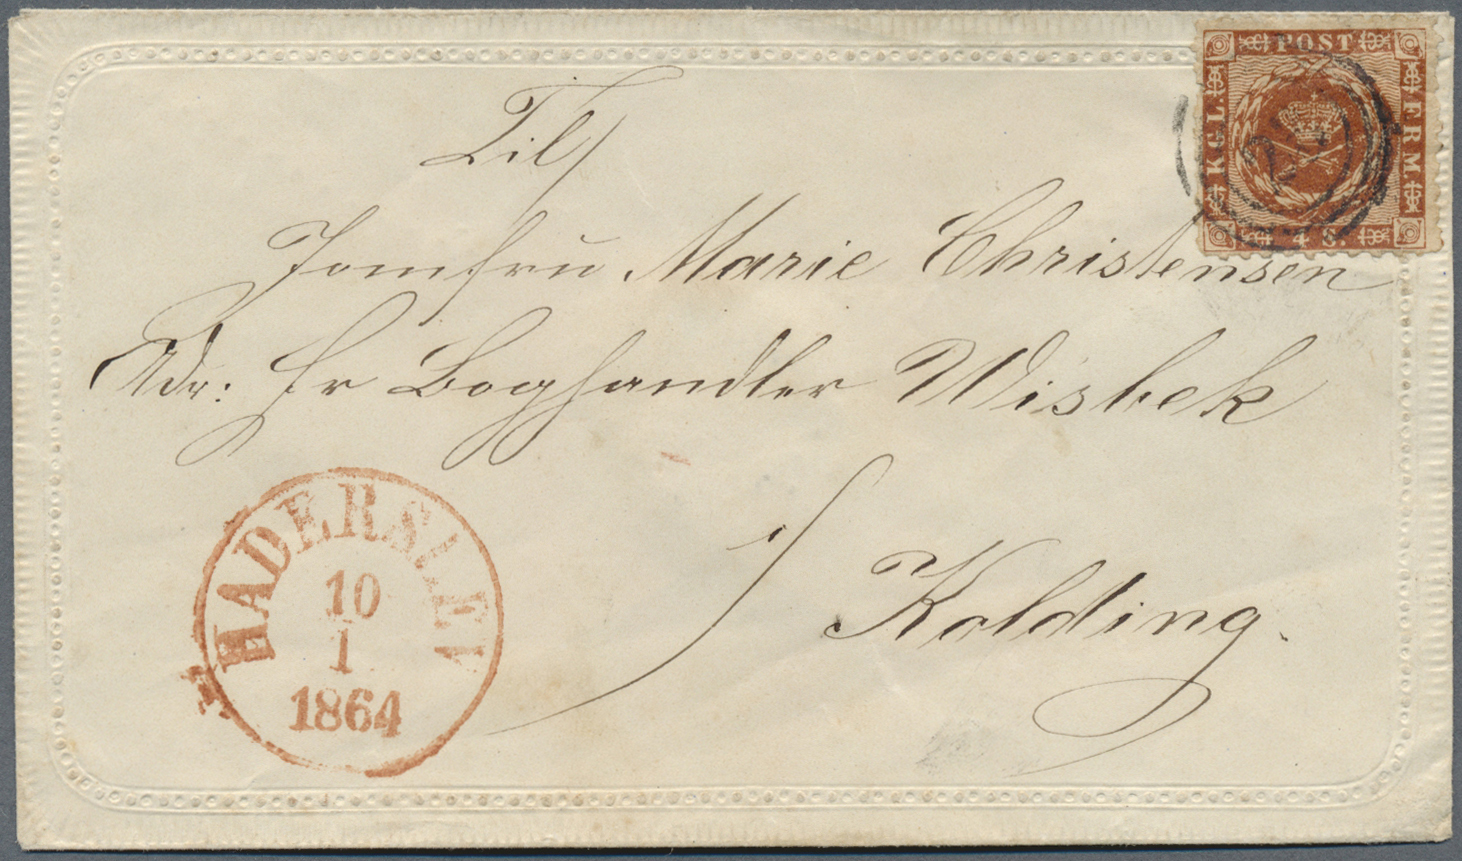 Til
Jomfru Marie Christensen
Adr: Hr Boghandler Wisbek
i Kolding.
HADERSLEV
10
1
1864
KGL. POST FRM.
4 S.